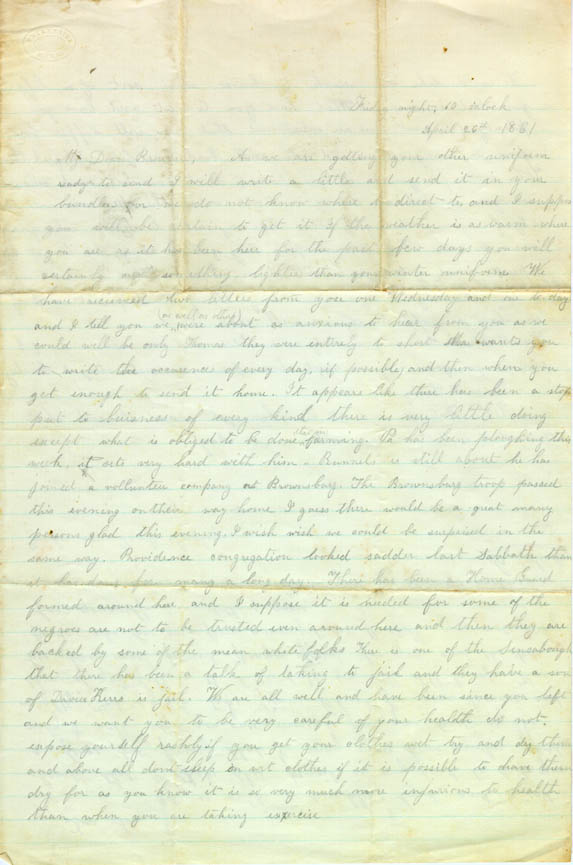 Friday night, 10 oclock
April 26th 1861
My Dear Brother, As we are getting your other uniform
ready to send I will write a little and send it in your
bundles for we do not know where to direct to, and I suppose
you will be certain to get it if the weather is as warm where
you are as it has been here for the past few days you will
certainly need something lighter than your winter uniform We
have received two letters from you one Wednesday and one to day
and I tell you we (as well as others) were about as anxious to hear from you as we
could well be only Thomas they were entirely to short Ma wants you
to write the occurences of every day, if possible, and then when you
get enough to send it home. It appears like there has been a stop
put to buisness of every kind there is very little doing
except what is obliged to be done farming. Pa has been ploughing this
week, it sets very hard with him. Runnels is still about he has
joined a vollunteer company at Brownsburg. The Brownsburg troop passed
this evening on their way home I guess there would be a great many
persons glad this evening. I wish wish we could be surprised in the
same way. Providence congregation looked sadder last Sabbath than
it has done for many a long day. There has been a Home Guard
formed around here and I suppose it is needed for some of the
negroes are not to be trusted even around here and then they are
backed by some of the mean white folks There is one of the
that there has been a talk of taking to jail and they have a son
of in jail. We are all well and have been since you left
and we want you to be very careful of your health do not
expose yourself rashly if you get your clothes wet try and dry them
and above all dont sleep in wet clothes if it is possible to have them
dry for as you know it is so very much more injurious to health
than when you are taking exercise